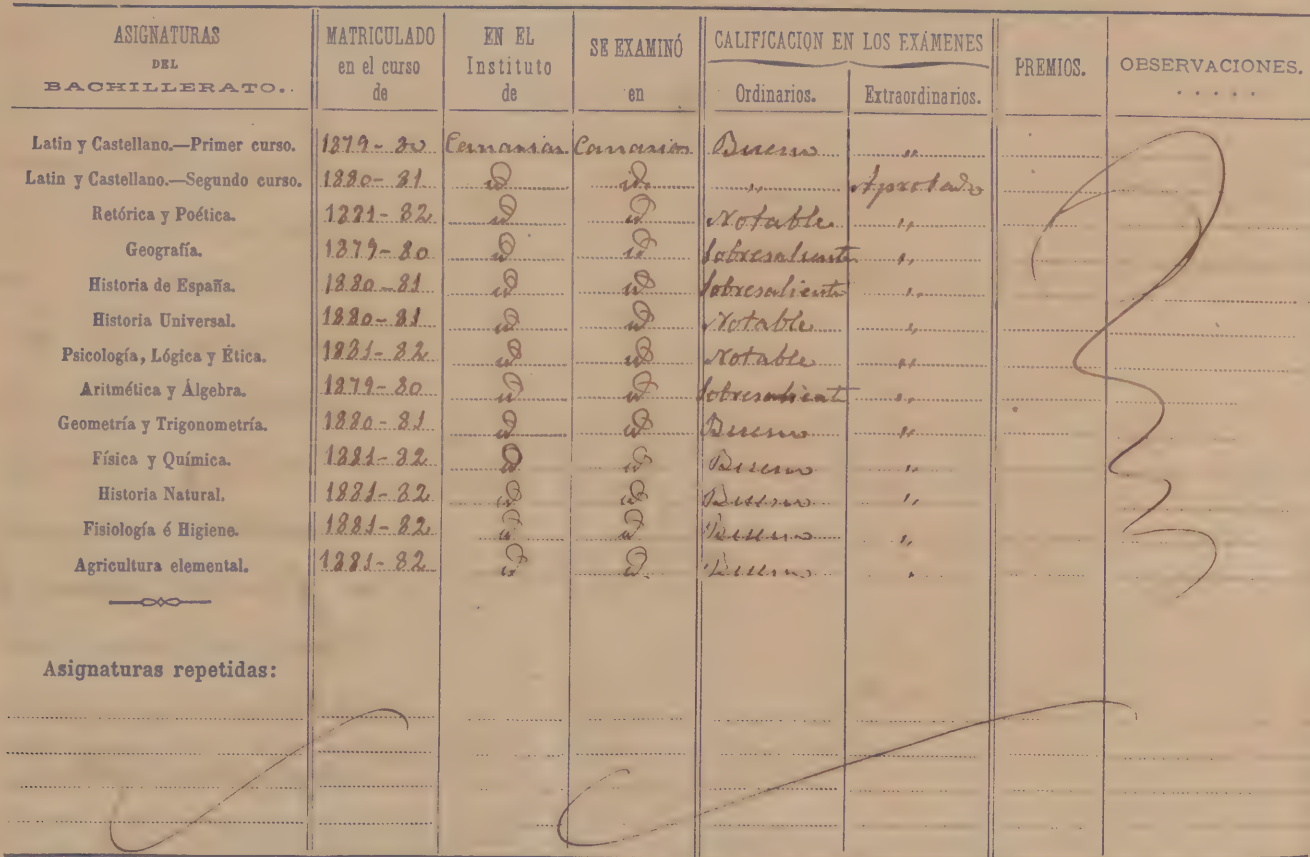 ASIGNATURAS DEL BACHILLERATO. MATRICULADO en el curso de EN EL Instituto de SE EXAMINÓ en CALIFICACION EN LOS EXÁMENES Ordinarios. Extraordinarios. PREMIOS. OBSERVACIONES.
Latin y Castellano.—Primer curso. 1879-80 Canarias Canarias Bueno „
Latin y Castellano.—Segundo curso. 1880-81 id id. „ Aprobado
Retórica y Poética. 1881-82 id id Notable „
Geografía. 1879-80 id id Sobresaliente „
Historia de España. 1880-81 id id Sobresaliente „
Historia Universal. 1880-81 id id Notable „
Psicología, Lógica y Ética. 1881-82 id id Notable „
Aritmética y Álgebra. 1879-80 id id Sobresalient „
Geometría y Trigonometría. 1880-81 id id Bueno „
Física y Química. 1881-82 id id Bueno „
Historia Natural. 1881-82 id id Bueno „
Fisiología é Higiene. 1881-82 id id Bueno „
Agricultura elemental. 1881-82 id id Bueno „
Asignaturas repetidas: